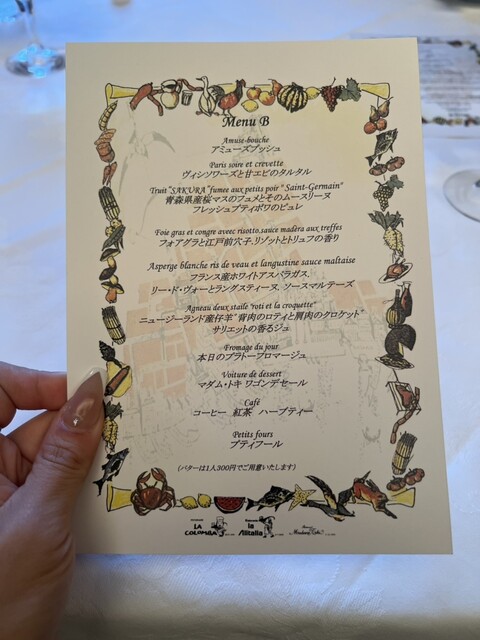 Menu B
Amuse-bouche
アミューズブッシュ
Paris soire et crevette
ヴィシソワーズと甘エビのタルタル
Truit "SAKURA" fumee aux petits poir " Saint-Germain"
青森県産桜マスのフュメとそのムースリーヌ
フレッシュプティポワのピュレ
Foie gras et congre avec risotto.sauce madèra aux treffes
フォアグラと江戸前穴子.リゾットとトリュフの香り
Asperge blanche ris de veau et langustine sauce maltaise
フランス産ホワイトアスパラガス.
リー・ド・ヴォーとラングスティーヌ. ソースマルテーズ
Agneau deux staile "roti et la croquette"
ニュージーランド産仔羊"背肉のロティと肩肉のクロケット"
サリエットの香るジュ
Fromage du jour
本日のプラトーフロマージュ
Voiture de dessert
マダム・トキ ワゴンデセール
Café
コーヒー 紅茶 ハーブティー
Petits fours
プティフール
(バターは1人300円でご用意いたします)
LA COLOMBA
la Alitalia